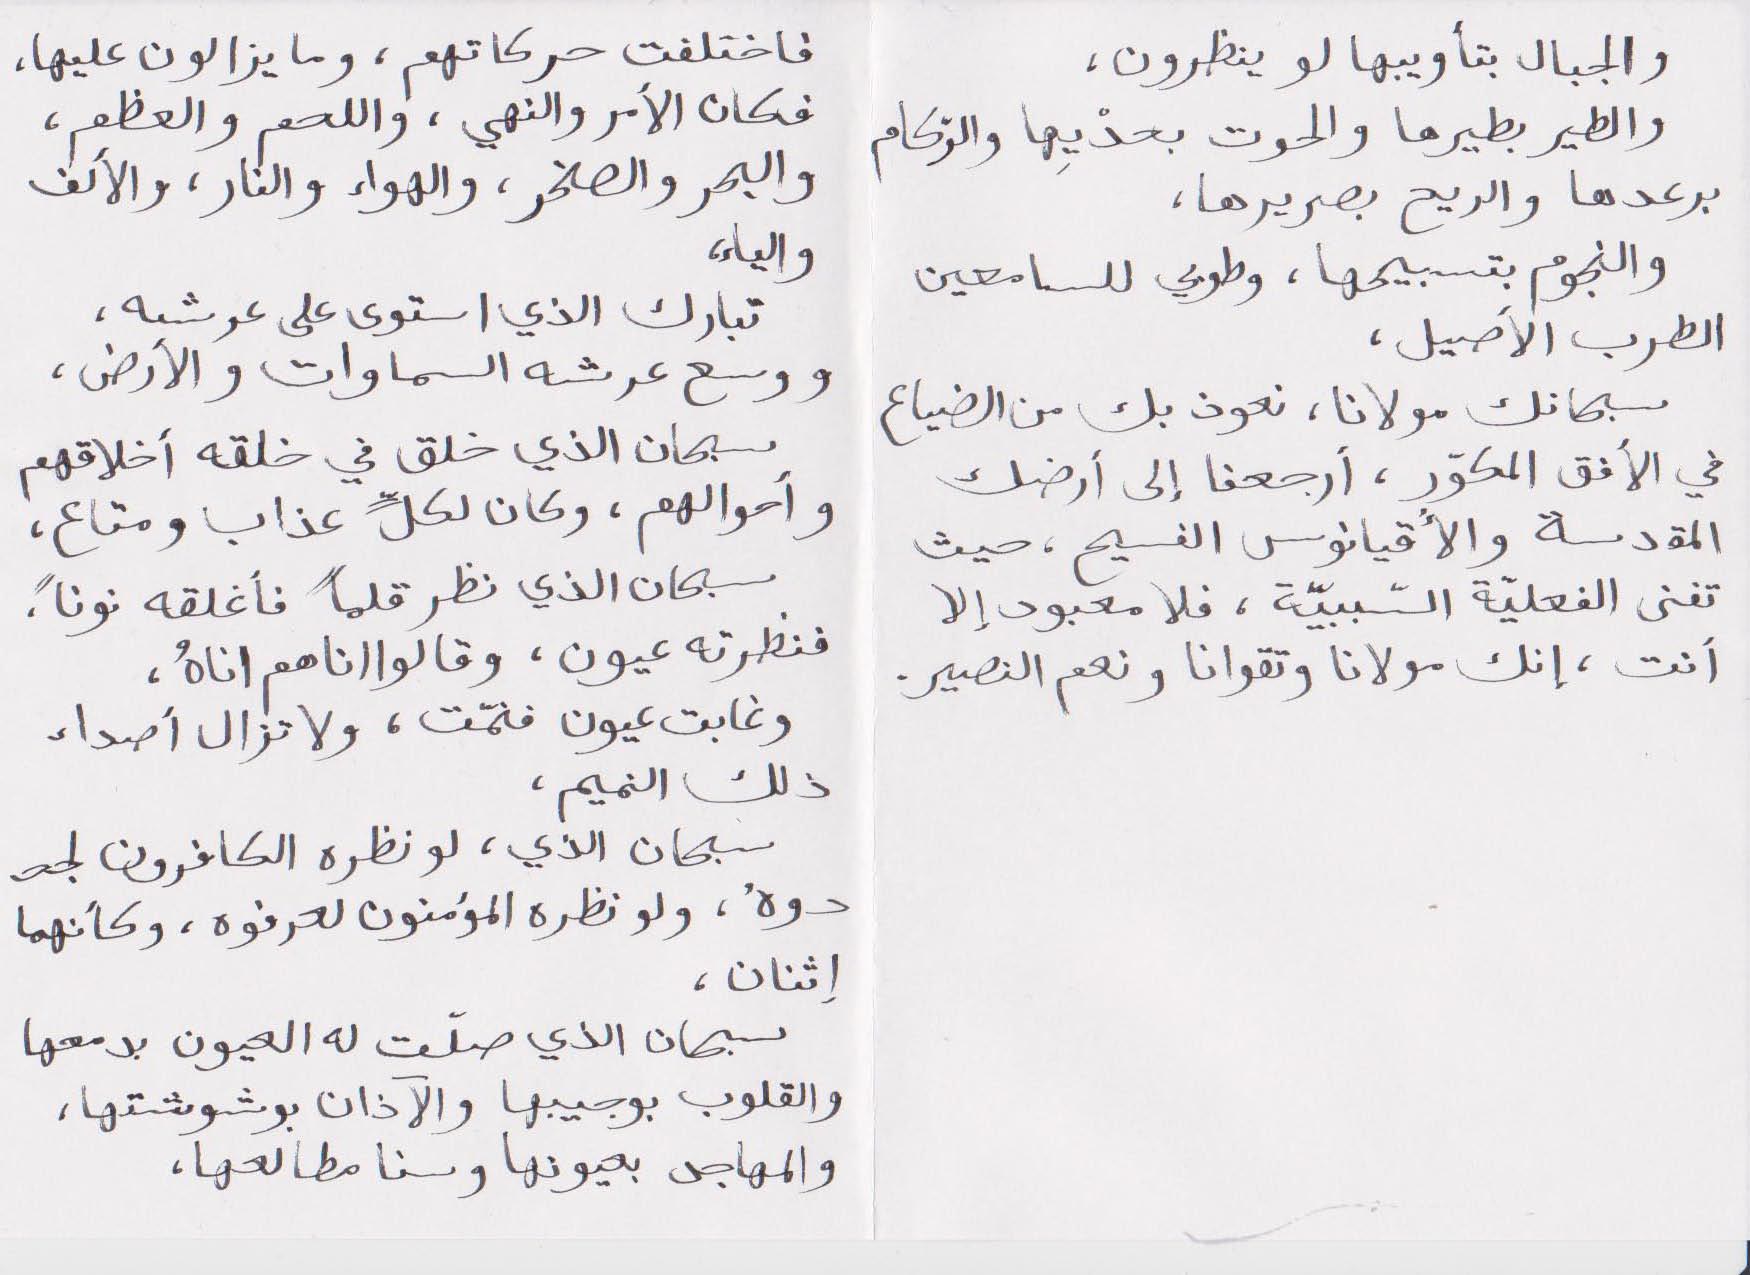 فاختلفت حركاتهم، وما يزالون عليها،
فكان الأمر والنهي، واللحم والعظم،
والبحر والصخر، والهواء والنار، والألف
والياء،
تبارك الذي استوى على عرشه،
ووسع عرشه السماوات والأرض،
سبحان الذي خلق في خلقه أخلاقهم
وأحوالهم، وكان لكلٍّ عذاب ومتاع،
سبحان الذي نظر قلماً فأغلقه نوناً،
فنظرته عيون، وقالوا اناهم اناهُ،
وغابت عيون فنمّت، ولا تزال أصداء
ذلك النميم،
سبحان الذي، لو نظره الكافرون لجحـ
ـدوهُ، ولو نظره المؤمنون لعرفوه، وكأنهما
إثنان،
سبحان الذي صلّت له العيون بدمعها
والقلوب بوجيبها والآذان بوشوشتها،
والمهاجر بعيونها وسنا مطالعها،
والجبال بتأويبها لو ينظرون،
والطير بطيرها والحوت بحدْيِها والرّكام
برعدها والريح بصريرها،
والنجوم بتسبيحها، وطوبي للسامعين
الطرب الأصيل،
سبحانك مولانا، نعوذ بك من الضياع
في الأفق المكوّر، أرجعنا إلى أرضك
المقدسة والأُقيانوس الفسيح، حيث
تفنى الفعليّة السّببيّة، فلا معبود إلا
أنت، إنك مولانا وتقوانا ونعم النصير.